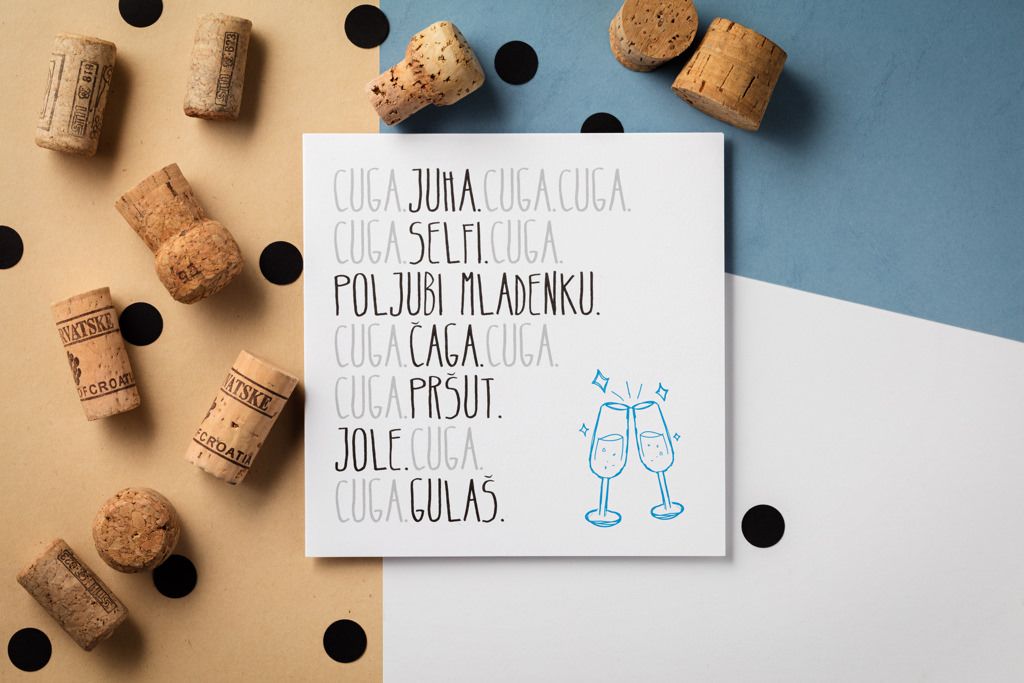 CUGA.JUHA.CUGA.CUGA.
CUGA.SELFI.CUGA.
POLJUBI MLADENKU.
CUGA.ČAGA.CUGA.
CUGA.PRŠUT.
JOLE.CUGA.
CUGA.GULAŠ.
RVATSKE
OF CROATI
VATSKE
CROATIA